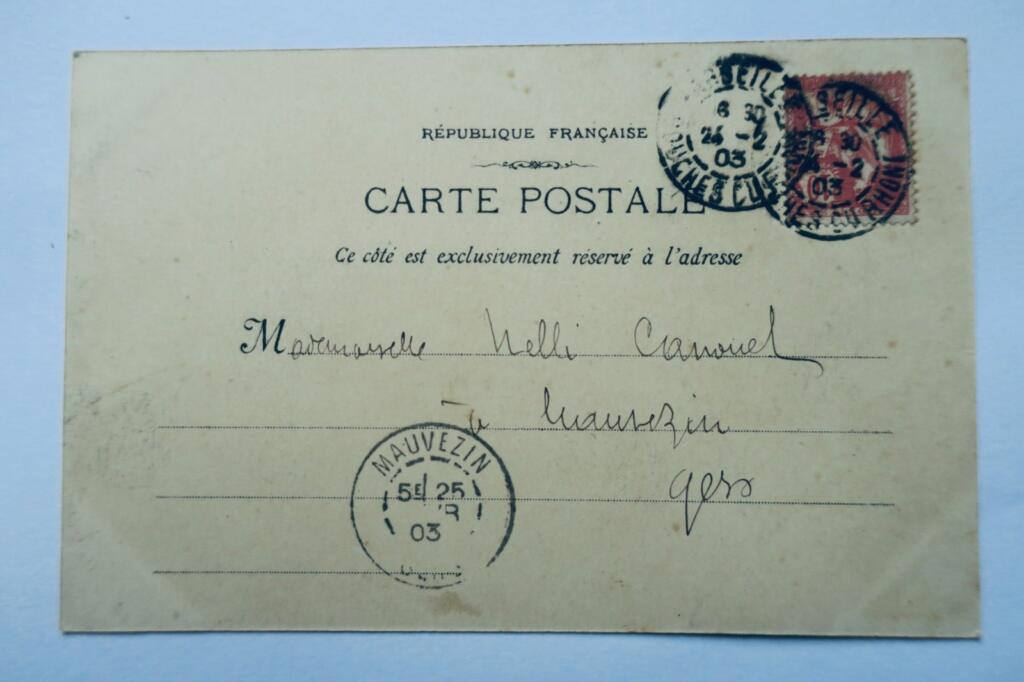 RÉPUBLIQUE FRANÇAISE
CARTE POSTALE
Ce côté est exclusivement réservé à l'adresse
Mademoiselle Nelli Canouet
à Mauvezin
Gers
MARSEILLE
6 30
24 -2
03
BOUCHES DU RHÔNE
MARSEILLE
6 30
24 -2
03
BOUCHES DU RHÔNE
MAUVEZIN
5E 25
03